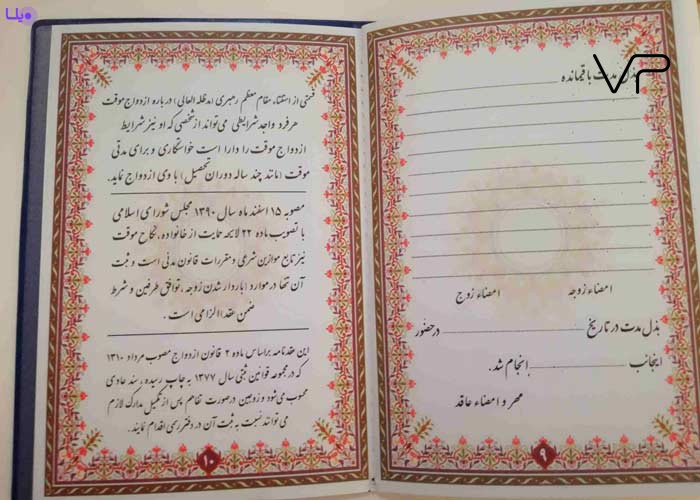 بذل مدت باقیمانده
امضاء زوجه
امضاء زوج
بذل مدت در تاریخ در حضور
اینجانب انجام شد.
مهر و امضاء عاقد
۹
قسمتی از استفتاء مقام معظم رهبری (مدظله العالی) درباره ازدواج موقت
هر فرد واجد شرایطی می‌تواند از شخصی که او نیز شرایط
ازدواج موقت را دارا است خواستگاری و برای مدتی
موقت (مانند چند ساله دوران تحصیل) با وی ازدواج نماید.
مصوبه ۱۵ اسفند ماه سال ۱۳۹۰ مجلس شورای اسلامی
با تصویب ماده ۲۲ لایحه حمایت از خانواده، نکاح موقت
نیز تابع موازین شرعی و مقررات قانون مدنی است و ثبت
آن تنها در موارد (باردار شدن زوجه، توافق طرفین و شرط
ضمن عقد) الزامی است.
این عقدنامه بر اساس ماده ۲ قانون ازدواج مصوب مرداد ۱۳۱۰
که در مجموعه قوانین ثبتی سال ۱۳۷۷ به چاپ رسیده، سند عادی
محسوب می‌شود و زوجین در صورت تفاهم پس از تکمیل مدارک لازم
می‌توانند نسبت به ثبت آن در دفتر رسمی اقدام نمایند.
۱۰
ویلسا
VP